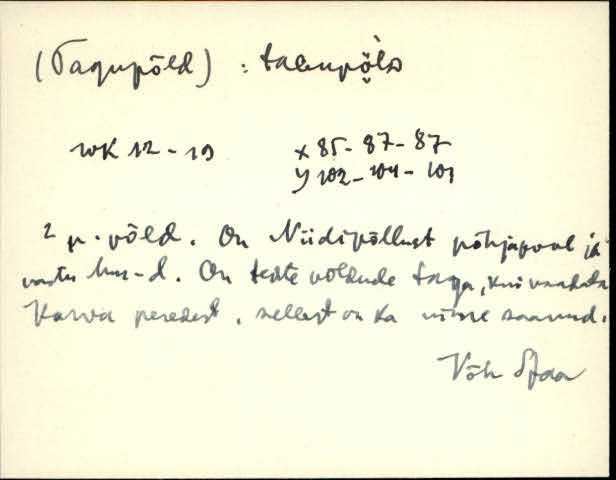 (Tagupõld) : taGupõlD
WK 12-19 x 85-87-87
y 102-104-103
2 p. põld. On Niidipõllust põhjapool ja
vastu On teste põldude taga, kui vaadata
Karva peredest, sellest on ka nime saanud.
Võh